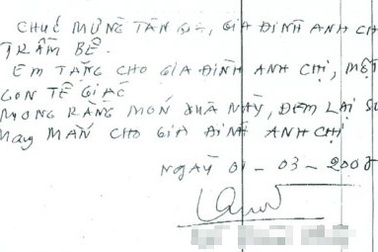 CHÚC MỪNG TÂN GIA, GIA ĐÌNH ANH CH
TRẦM BÊ.
EM TẶNG CHO GIA ĐÌNH ANH CHỊ, MỘT
CON TÊ GIÁC
MONG RẰNG MÓN QUÀ NÀY, ĐEM LẠI SỰ
MAY MẮN CHO GIA ĐÌNH ANH CHỊ
NGÀY 01 - 03 - 2008